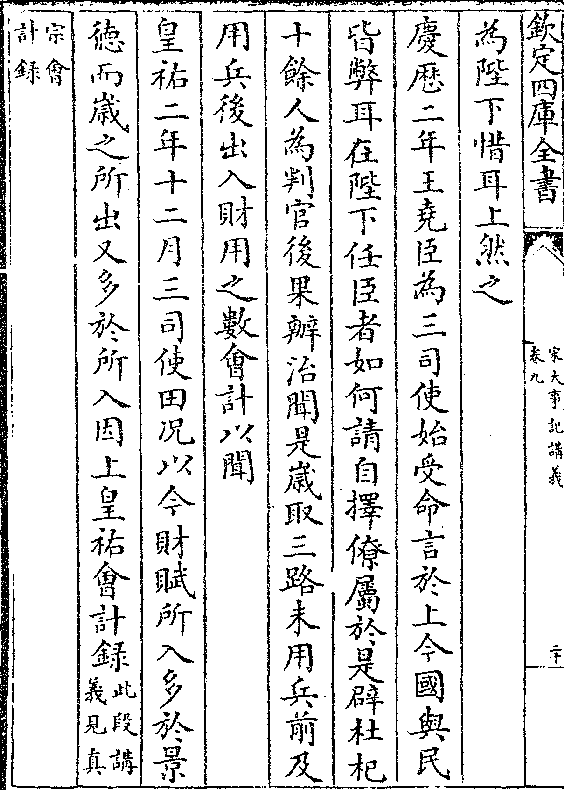 欽定四庫全書
宋大事記講義
卷九
二十
為陛下惜耳上然之
慶歴二年王堯臣為三司使始受命言於上今國與民
皆弊耳在陛下任臣者如何請自擇僚屬於是辟杜杞
十餘人為判官後果辦治聞是歳取三路未用兵前及
用兵後出入財用之數會計以聞
皇祐二年十二月三司使田况以今財賦所入多於景
徳而歳之所出又多於所入因上皇祐會計録此段講
義見真
宗會
計録